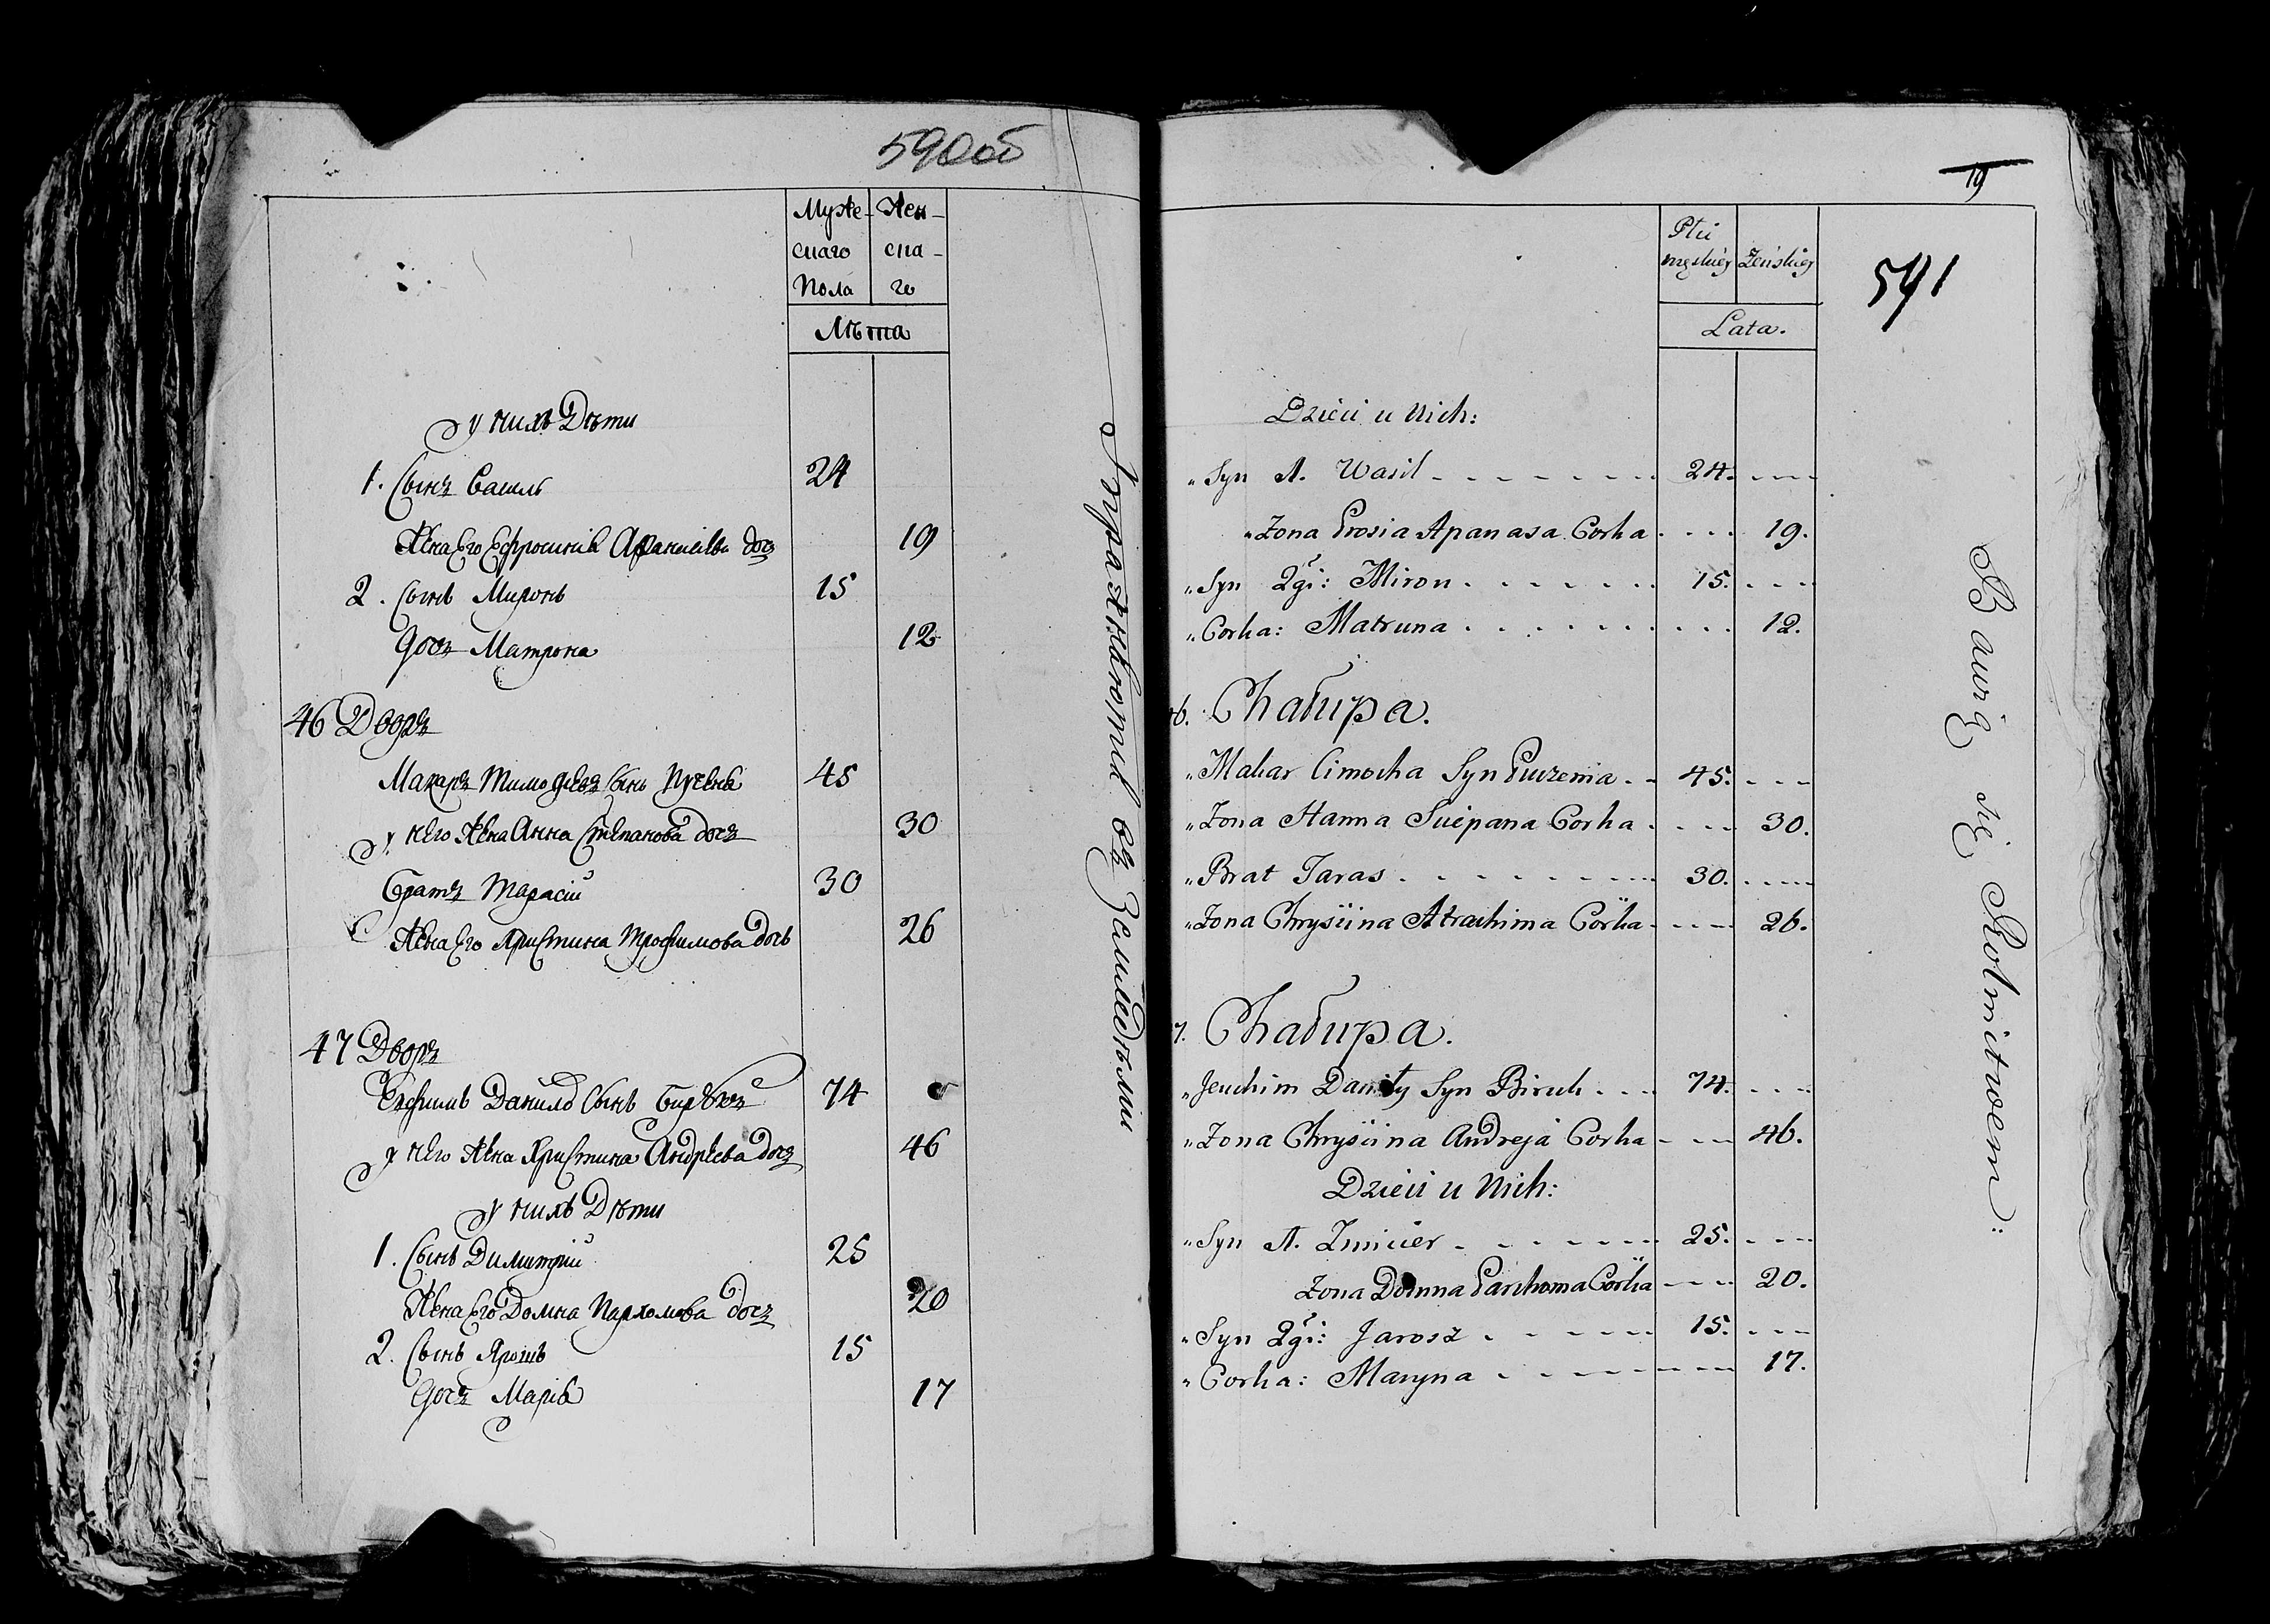 590об
Муже- Жен-
скаго ска-
Пола го
Лѣта
У нихъ Дѣти
1. Сынъ Василь 24
Жена Его Ефросинія Афанасіева дочъ 19
2. Сынъ Миронъ 15
Дочъ Матрона 12
46 Дворъ
Макаръ Тимофѣевъ Сынъ 45
у него Жена Анна Степанова дочъ 30
Братъ Тарасій 30
Жена Его Христина Трофимова дочь 26
47 Дворъ
Ехфимъ Данило Сынъ Бирюкъ 74
у него Жена Христина Андрѣева дочъ 46
у нихъ Дѣти
1. Сынъ Димитрій 25
Жена Его Домна Пархомова дочъ 20
2. Сынъ Ярошъ 15
Дочъ Марія 17
Упражняются въ Земледѣліи
19
591
Płci
męskiey Żeńskiey
Lata.
Dzieci u Nich:
„ Syn A. Wasil 24.
„ Zona Prosia Apanasa Corka 19.
„ Syn 2gi: Miron 15.
„ Corka: Matruna 12.
46. Chałupa.
„ Makar Cimocha Syn 45.
„ Zona Hanna Sciepana Corka 30.
„ Brat Taras 30.
„ Zona Chryscina Atrachima Corka 26.
7. Chałupa.
„ Jeuchim Daniły Syn Biruk 74.
„ Zona Chryscina Andreja Corka 46.
Dzieci u Nich:
„ Syn A. Zmicier 25.
Zona Domna Parchoma Corka 20.
„ Syn 2gi: Jarosz 15.
„ Corka: Maryna 17.
Bawią się Rolnictwem: